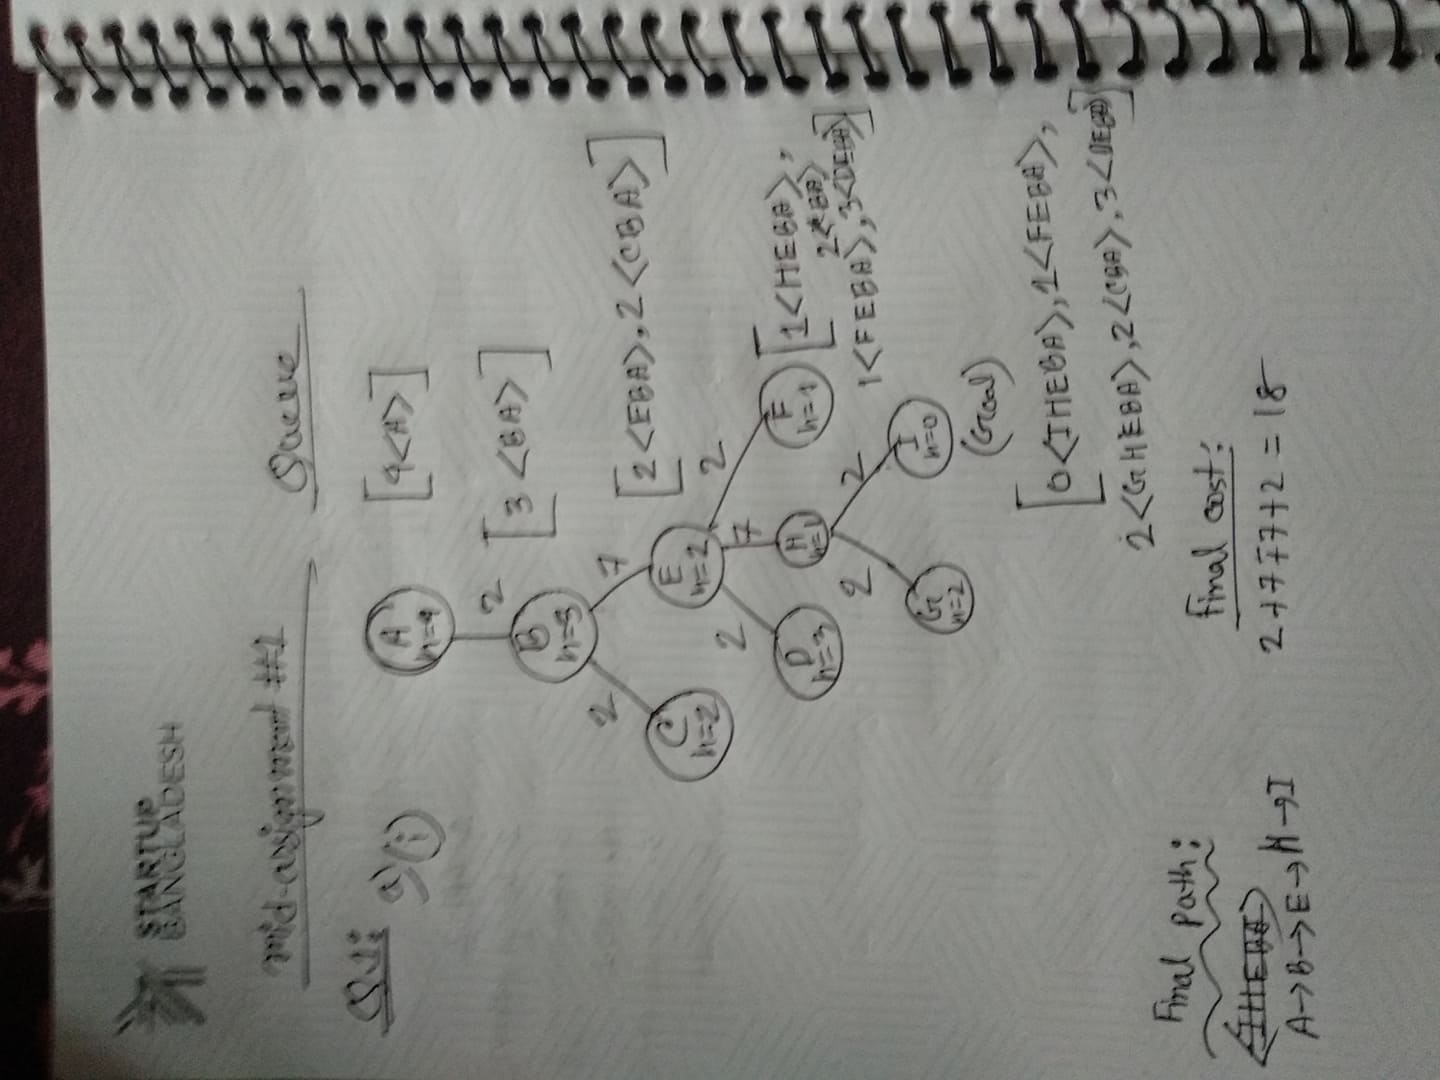 STARTUP
BANGLADESH
mid-assignment #1
Queue
Q1:
a) i
A
h=4
[4<A>]
2
[3 <BA>]
B
h=3
2
7
[2<EBA>, 2<CBA>]
C
h=2
E
h=2
2
7
2
D
h=3
H
h=1
F
h=1
[1<HEBA>,
2<CBA>
1<FEBA>, 3<DEBA>]
2
2
G
h=2
I
h=0
(Goal)
[0<IHEBA>, 1<FEBA>,
2<GHEBA>, 2<CBA>, 3<DEBA>]
Final path:
<IHEBA>
A→B→E→H→I
Final cost:
2+7+7+2 = 18